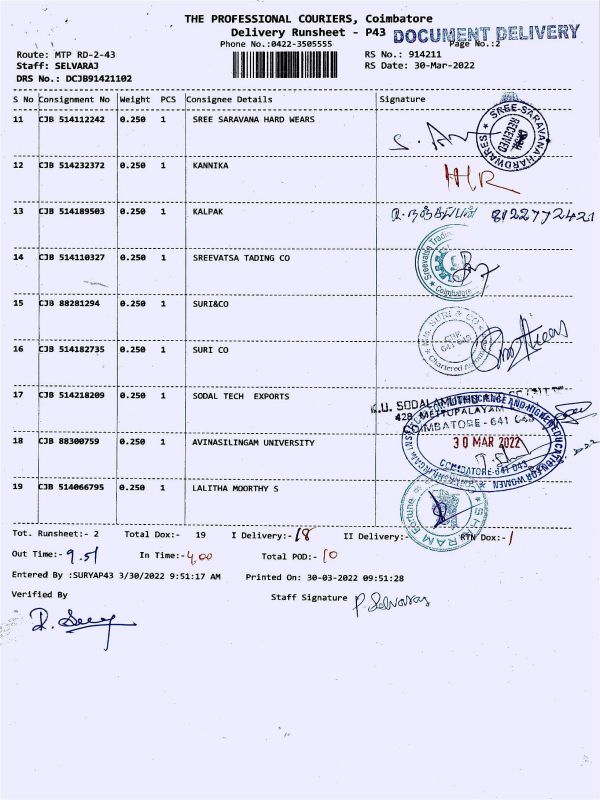 THE PROFESSIONAL COURIERS, Coimbatore
Delivery Runsheet - P43 DOCUMENT DELIVERY
Phone No.:0422-3505555 Page No.:2
Route: MTP RD-2-43 RS No.: 914211
Staff: SELVARAJ RS Date: 30-Mar-2022
DRS No.: DCJB91421102
S No Consignment No Weight PCS Consignee Details Signature
11 CJB 514112242 0.250 1 SREE SARAVANA HARD WEARS
SREE SARAVANA HARDWARES RECEIVED
12 CJB 514232372 0.250 1 KANNIKA
13 CJB 514189503 0.250 1 KALPAK 8122772421
14 CJB 514110327 0.250 1 SREEVATSA TADING CO
Sreevatsa Trading Coimbatore
15 CJB 88281294 0.250 1 SURI&CO
M/s. SURI & CO Chartered Accountants
16 CJB 514182735 0.250 1 SURI CO
17 CJB 514218209 0.250 1 SODAL TECH EXPORTS
METTUPALAYAM
COIMBATORE - 641 043
18 CJB 88300759 0.250 1 AVINASILINGAM UNIVERSITY
30 MAR 2022
COIMBATORE-641 043
19 CJB 514066795 0.250 1 LALITHA MOORTHY S
SHRIRAM Fortune
Tot. Runsheet:- 2 Total Dox:- 19 I Delivery:- 18 II Delivery:- RTN Dox:- 1
Out Time:- 9.51 In Time:- 4.00 Total POD:- 10
Entered By :SURYAP43 3/30/2022 9:51:17 AM Printed On: 30-03-2022 09:51:28
Verified By Staff Signature P. Selvaraj